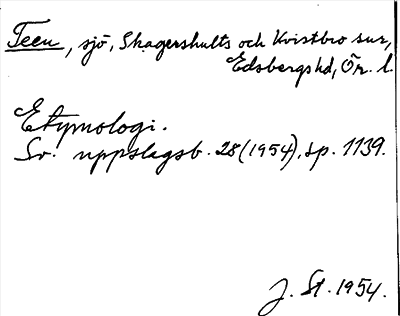 Teen, sjö, Skagershults och Kvistbro snr,
Edsbergs hd, Ör. l.
Etymologi.
Sv. uppslagsb. 28 (1954), sp. 1139.
J. St. 1954.